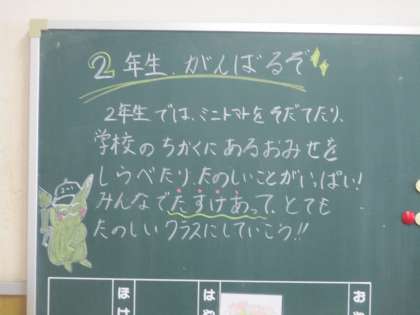 2年生.がんばるぞ
2年生では、ミニトマトをそだてたり、
学校のちかくにあるおみせを
しらべたり、たのしいことがいっぱい!
みんなでたすけあって、とても
たのしいクラスにしていこう!!
ほけ
はや
お